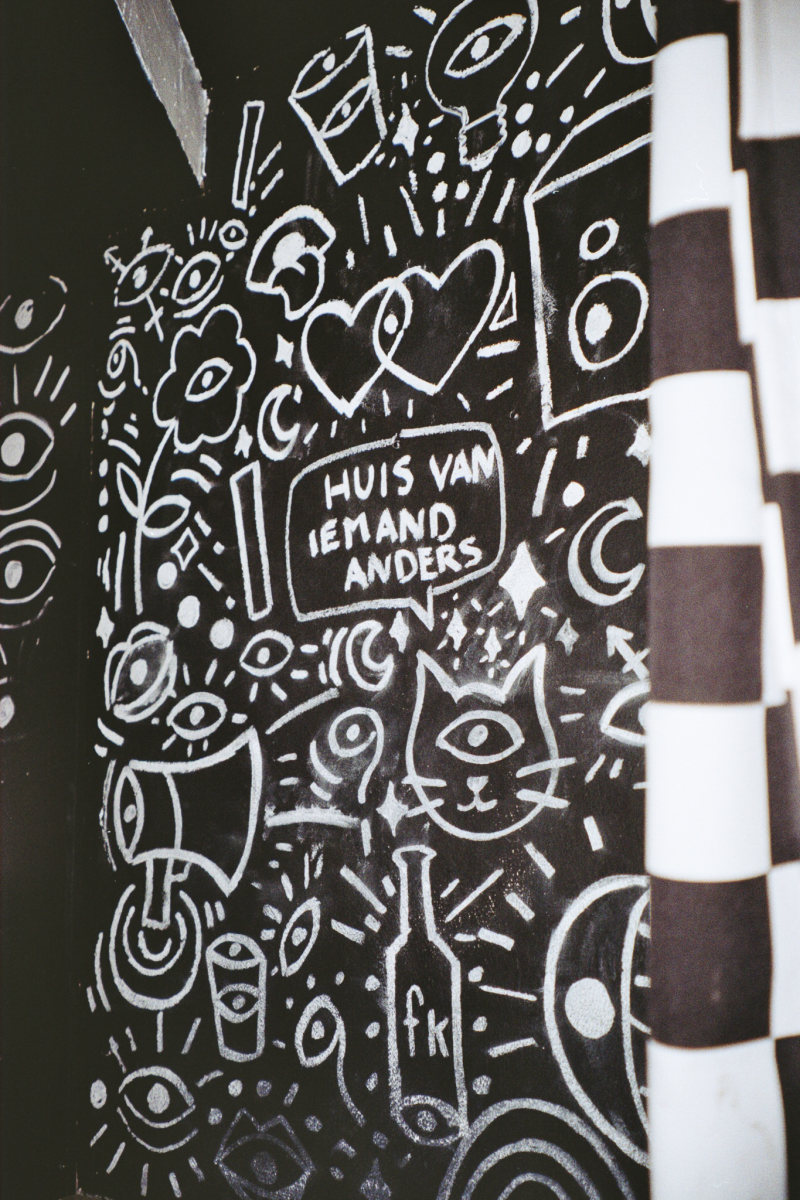 HUIS VAN
IEMAND
ANDERS
fk